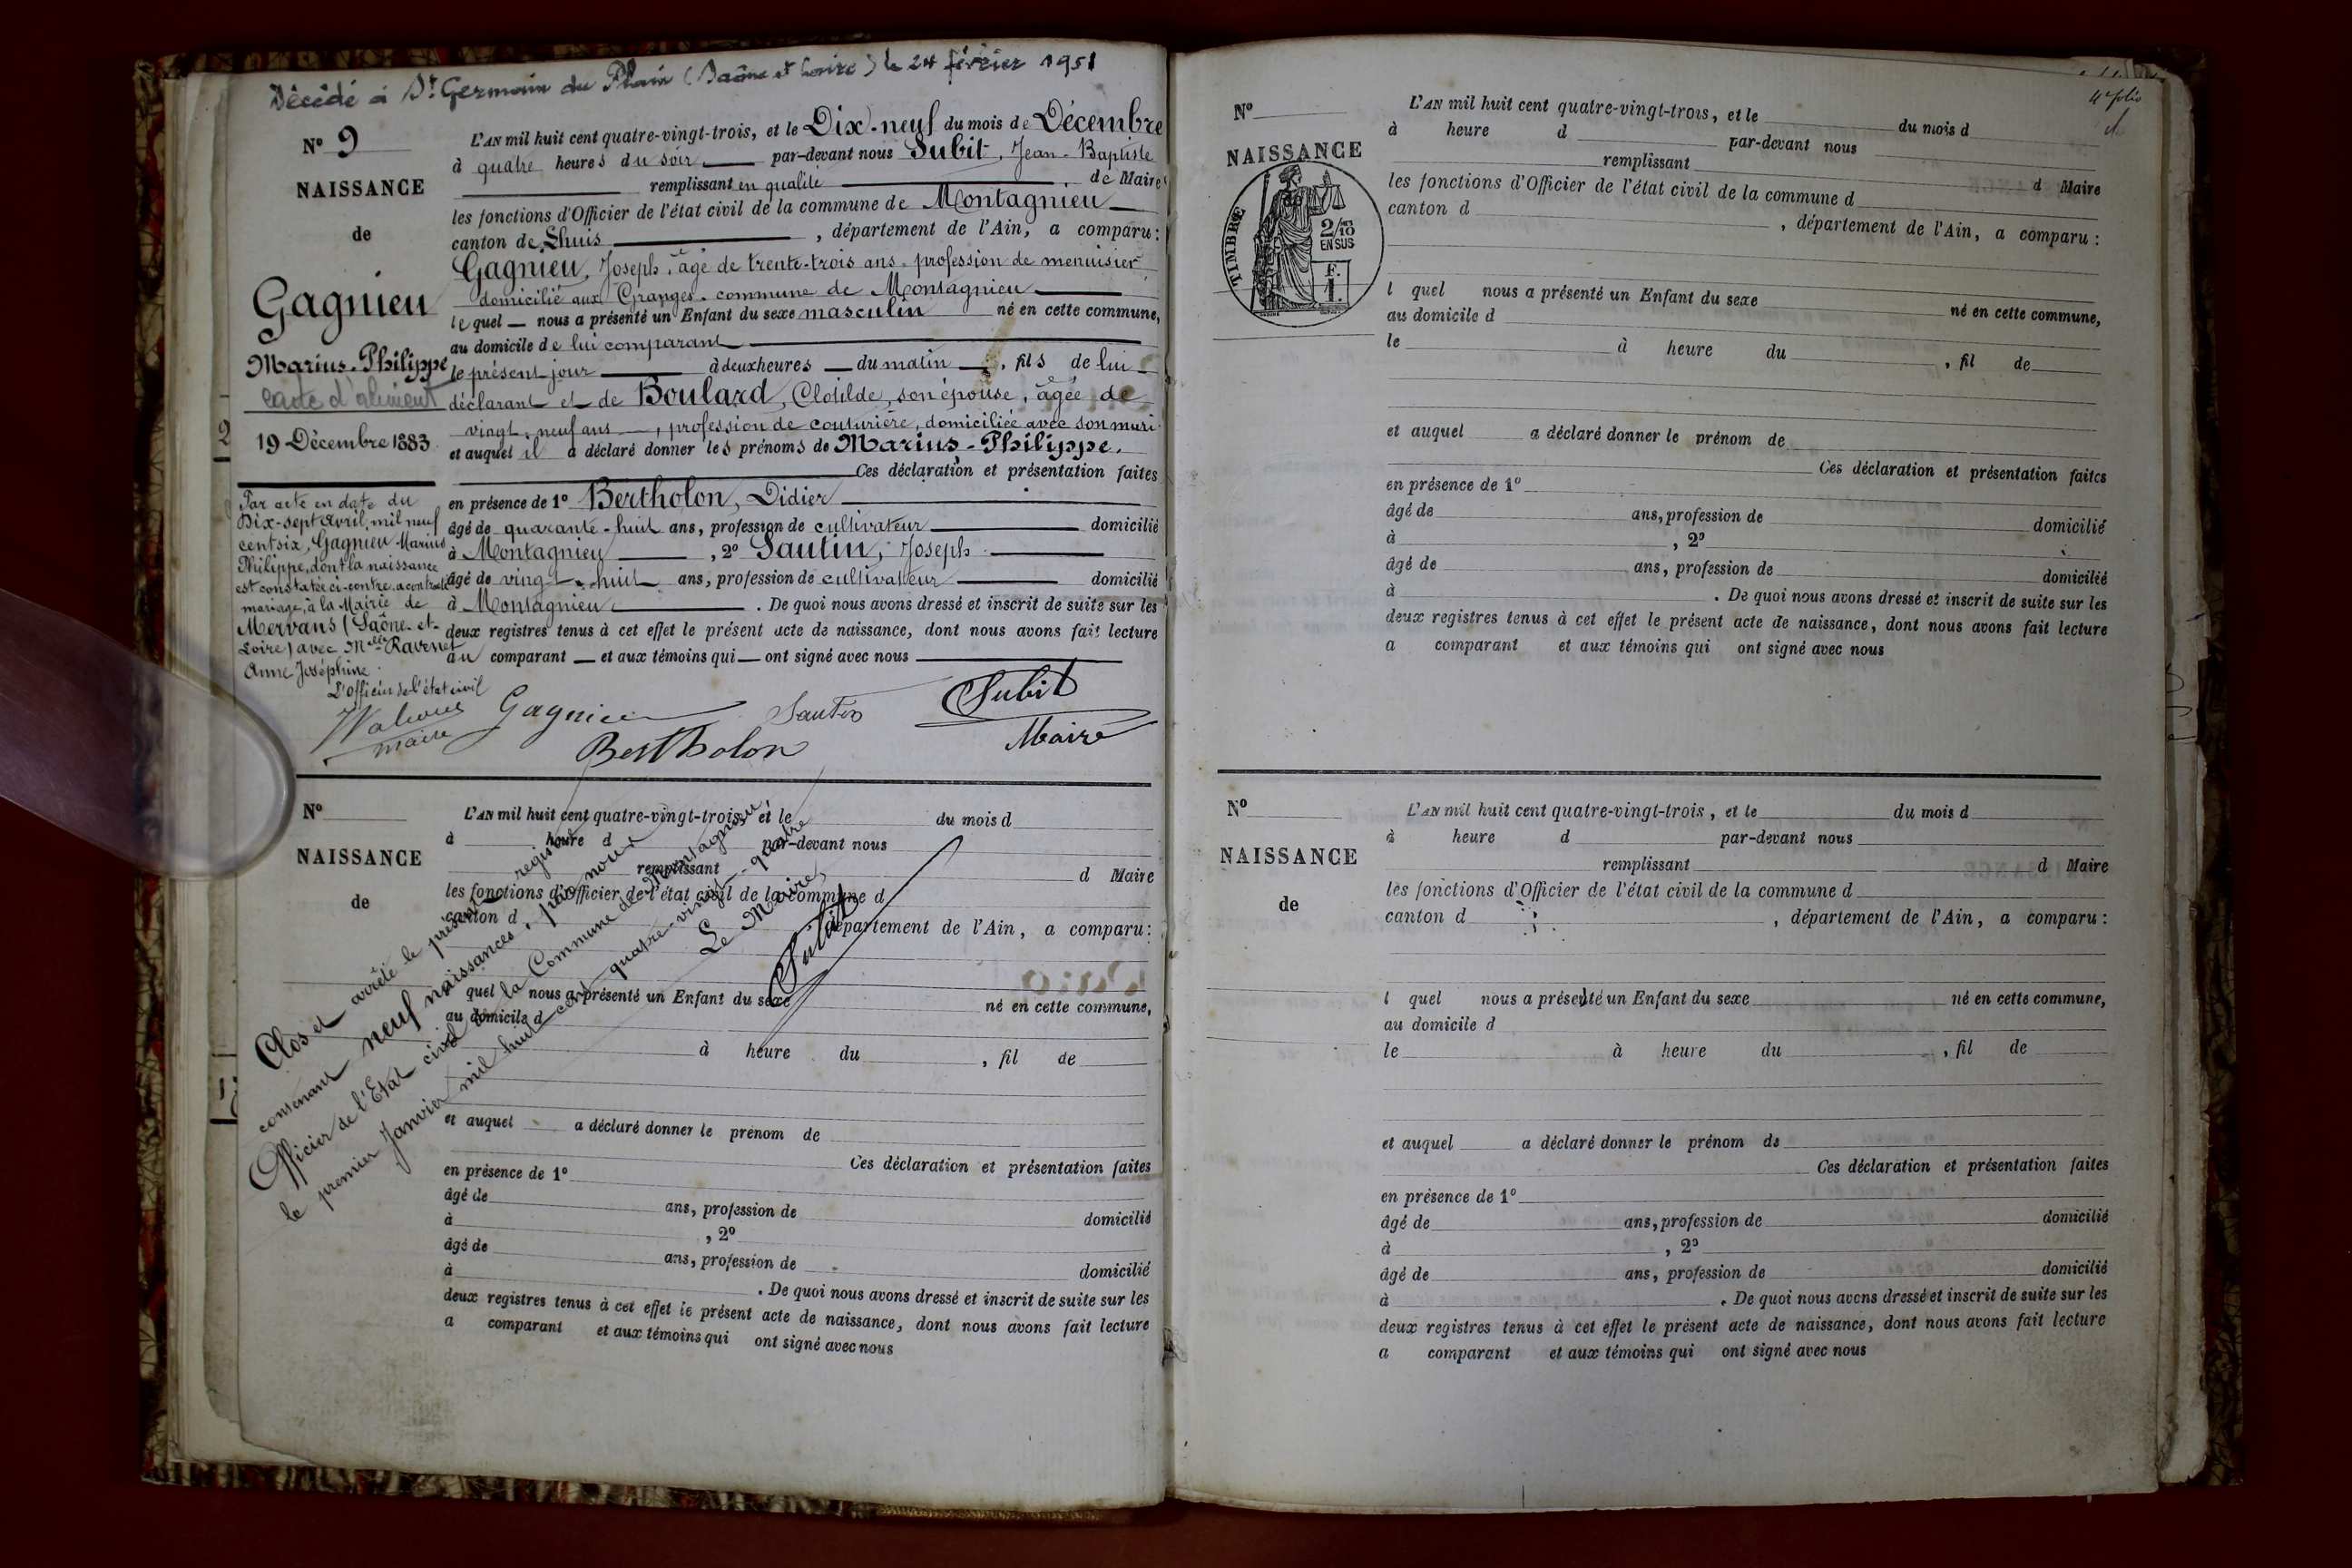 Décédé à St Germain du Plain (Saône et Loire) le 24 février 1951
N° 9
NAISSANCE
de
Gagnieu
Marius-Philippe
carte d'aliment
19 Décembre 1883
Par acte en date du
Dix-sept Avril, mil neuf
cent six, Gagnieu Marius
Philippe, dont la naissance
est constatée ci-contre, a contracté
mariage, à la Mairie de
Mervans (Saône-et-
Loire) avec Melle Ravenet
Anne Joséphine.
L'officier de l'état civil
maire
L'AN mil huit cent quatre-vingt-trois, et le Dix-neuf du mois de Décembre
à quatre heures du soir par-devant nous Subit, Jean-Baptiste
remplissant en qualité de Maire
les fonctions d'Officier de l'état civil de la commune de Montagnieu
canton de Lhuis, département de l'Ain, a comparu :
Gagnieu, Joseph, âgé de trente-trois ans, profession de menuisier
domicilié aux Granges, commune de Montagnieu
lequel nous a présenté un Enfant du sexe masculin né en cette commune,
au domicile de lui comparant
le présent jour à deux heures du matin, fils de lui
déclarant et de Boulard, Clotilde, son épouse, âgée de
vingt-neuf ans, profession de couturière, domiciliée avec son mari
et auquel il a déclaré donner les prénoms de Marius-Philippe.
Ces déclaration et présentation faites
en présence de 1° Bertholon, Didier
âgé de quarante-huit ans, profession de cultivateur domicilié
à Montagnieu, 2° Sautin, Joseph
âgé de vingt-huit ans, profession de cultivateur domicilié
à Montagnieu. De quoi nous avons dressé et inscrit de suite sur les
deux registres tenus à cet effet le présent acte de naissance, dont nous avons fait lecture
au comparant et aux témoins qui ont signé avec nous
Gagnieu Sautin Subit
Bertholon Maire
N°
NAISSANCE
de
L'AN mil huit cent quatre-vingt-trois, et le du mois d
à heure d par-devant nous
remplissant d Maire
les fonctions d'Officier de l'état civil de la commune d
canton d département de l'Ain, a comparu :
l quel nous a présenté un Enfant du sexe né en cette commune,
au domicile d
à heure du , fil de
et auquel a déclaré donner le prénom de
Ces déclaration et présentation faites
en présence de 1°
âgé de ans, profession de domicilié
à , 2°
âgé de ans, profession de domicilié
à . De quoi nous avons dressé et inscrit de suite sur les
deux registres tenus à cet effet le présent acte de naissance, dont nous avons fait lecture
a comparant et aux témoins qui ont signé avec nous
Clos et arrêté le présent registre
contenant neuf naissances, par nous
Officier de l'Etat civil de la Commune de Montagnieu
le premier Janvier mil huit cent quatre-vingt-quatre
Le Maire,
Subit
N°
NAISSANCE
TIMBRE
2/10
EN SUS
F.
1.
L'AN mil huit cent quatre-vingt-trois, et le du mois d
à heure d par-devant nous
remplissant d Maire
les fonctions d'Officier de l'état civil de la commune d
canton d , département de l'Ain, a comparu :
l quel nous a présenté un Enfant du sexe né en cette commune,
au domicile d
le à heure du , fil de
et auquel a déclaré donner le prénom de
Ces déclaration et présentation faites
en présence de 1°
âgé de ans, profession de domicilié
à , 2°
âgé de ans, profession de domicilié
à . De quoi nous avons dressé et inscrit de suite sur les
deux registres tenus à cet effet le présent acte de naissance, dont nous avons fait lecture
a comparant et aux témoins qui ont signé avec nous
N°
NAISSANCE
de
L'AN mil huit cent quatre-vingt-trois, et le du mois d
à heure d par-devant nous
remplissant d Maire
les fonctions d'Officier de l'état civil de la commune d
canton d , département de l'Ain, a comparu :
l quel nous a présenté un Enfant du sexe né en cette commune,
au domicile d
le à heure du , fil de
et auquel a déclaré donner le prénom de
Ces déclaration et présentation faites
en présence de 1°
âgé de ans, profession de domicilié
à , 2°
âgé de ans, profession de domicilié
à . De quoi nous avons dressé et inscrit de suite sur les
deux registres tenus à cet effet le présent acte de naissance, dont nous avons fait lecture
a comparant et aux témoins qui ont signé avec nous